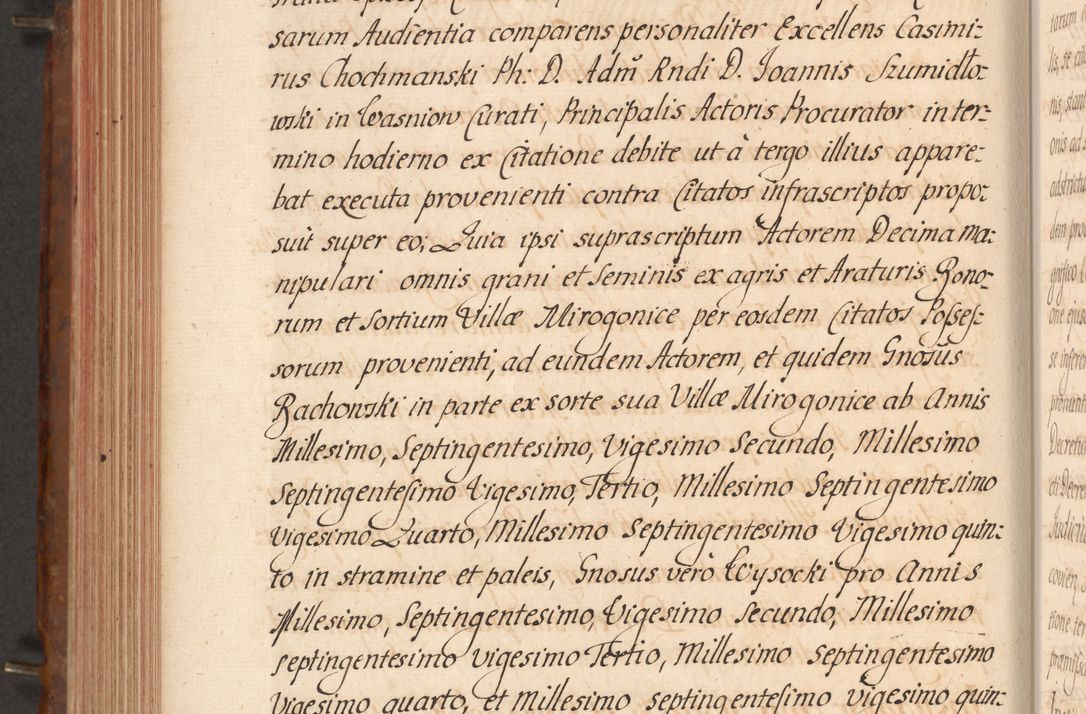 sarum Audientia comparens personaliter Excellens Casimi:
rus Chochmanski Ph: D. Adm̃ Rndi D. Joannis Szumidło:
wski in Wasniow Curati, Principalis Actoris Procurator in ter:
mino hodierno ex Citatione debite ut à tergo illius appare:
bat executa provenienti contra Citatos infrascriptos propo:
suit super eo; Quia ipsi suprascriptum Actorem Decima ma:
nipulari omnis grani et Seminis ex agris et Araturis Bono:
rum et Sortium Villæ Mirogonice per eosdem Citatos Poſseſ:
sorum provenienti, ad eundem Actorem, et quidem Gnosus
Rachowski in parte ex sorte sua Villæ Mirogonice ab Annis
Millesimo, Septingentesimo, Vigesimo Secundo, Millesimo
Septingenteſimo Vigesimo, Tertio, Millesimo Septingentesimo
Vigesimo Quarto, Millesimo Septingentesimo Vigesimo quin:
to in stramine et paleis, Gnosus verò Wysocki pro Annis
Millesimo, Septingentesimo, Vigesimo Secundo, Millesimo
septingentesimo vigesimo Tertio, Millesimo Septingentesimo
Vigesimo quarto, et Millesimo septingenteſimo vigesimo quin: